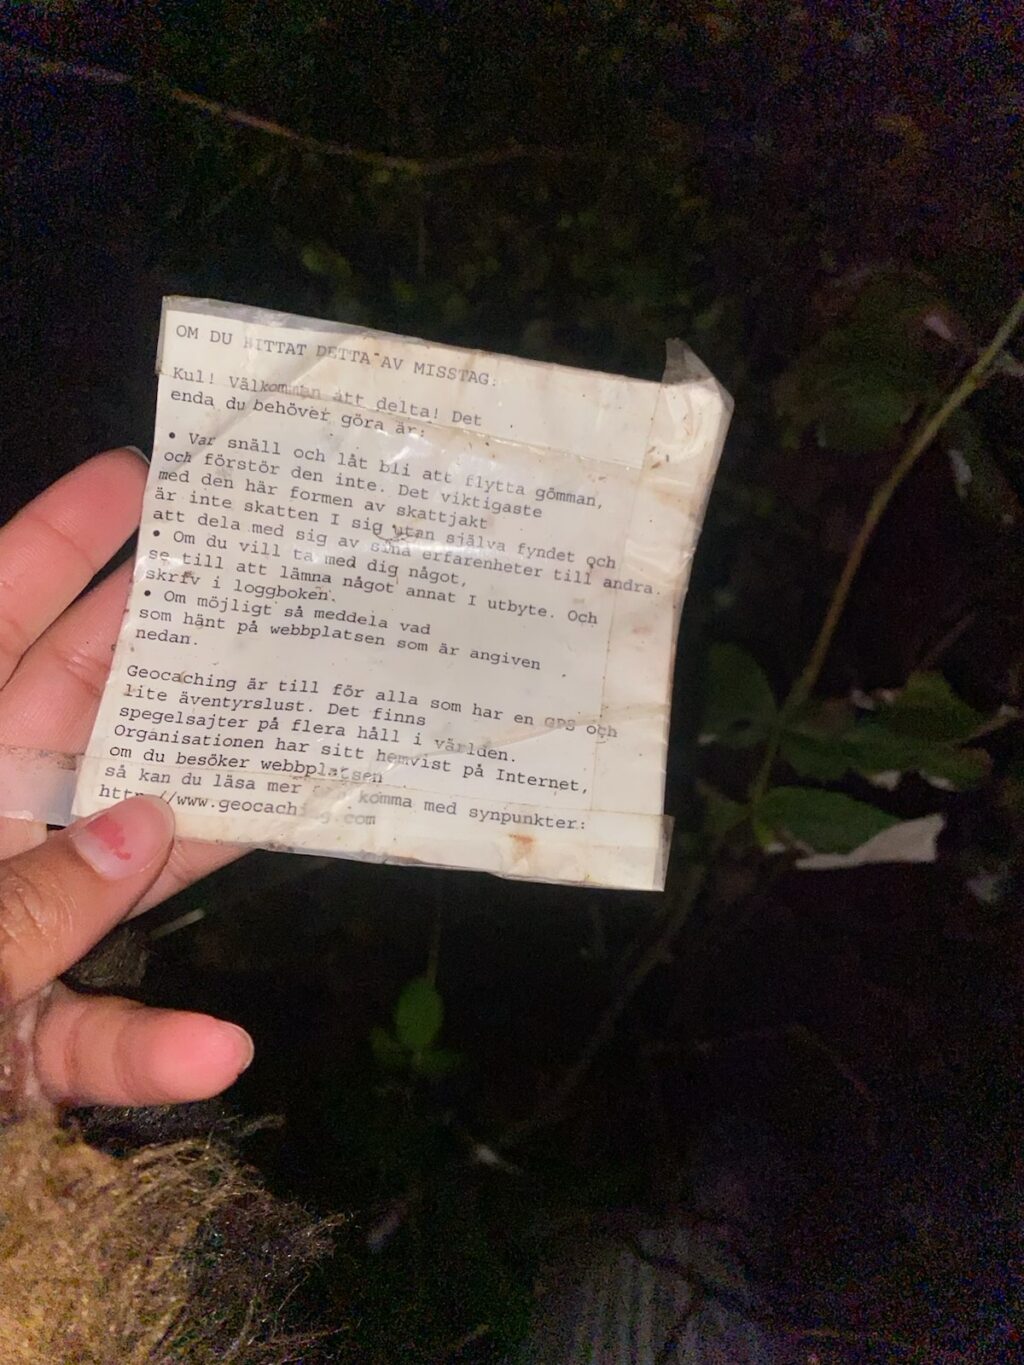 OM DU HITTAT DETTA AV MISSTAG:
Kul! Välkomman att delta! Det
enda du behöver göra är:
• Var snäll och låt bli att flytta gömman,
och förstör den inte. Det viktigaste
med den här formen av skattjakt
är inte skatten I sig utan själva fyndet och
att dela med sig av sina erfarenheter till andra.
• Om du vill ta med dig något,
se till att lämna något annat I utbyte. Och
skriv i loggboken.
• Om möjligt så meddela vad
som hänt på webbplatsen som är angiven
nedan.
Geocaching är till för alla som har en GPS och
lite äventyrslust. Det finns
spegelsajter på flera håll i världen.
Organisationen har sitt hemvist på Internet,
om du besöker webbplatsen
så kan du läsa mer komma med synpunkter:
http://www.geocaching.com